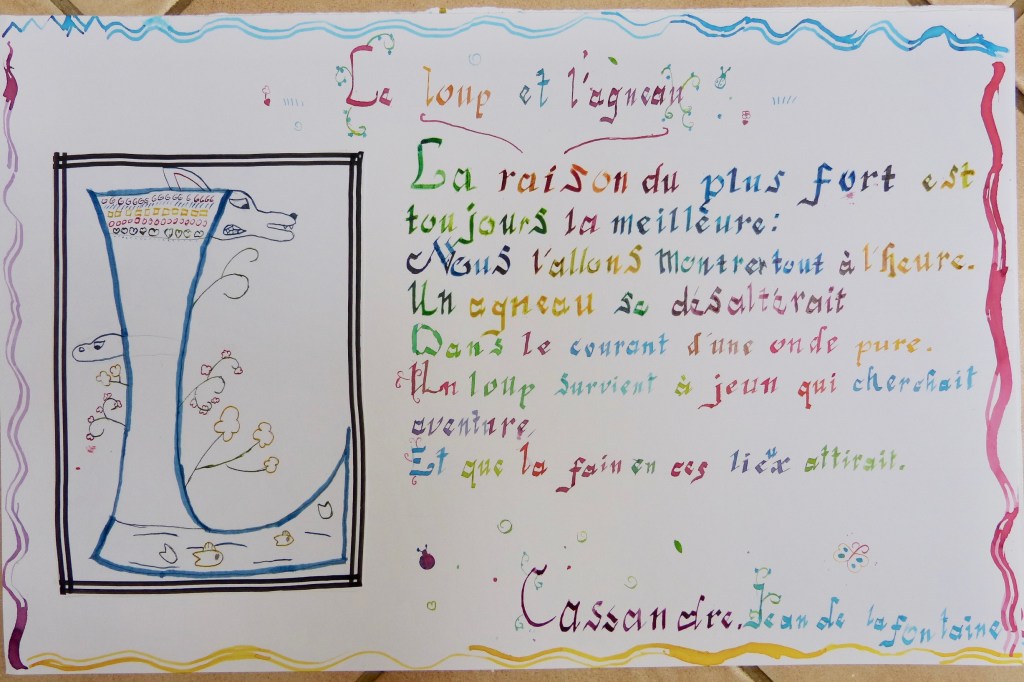 Le loup et l'agneau
La raison du plus fort est
toujours la meillèure:
Nous l'allons montrertout à l'heure.
Un agneau se désaltérait
Dans le courant d'une onde pure.
Un loup survient à jeun qui cherchait
aventure,
Et que la fain en ces lieux attirait.
Cassandre. Jean de la fontaine